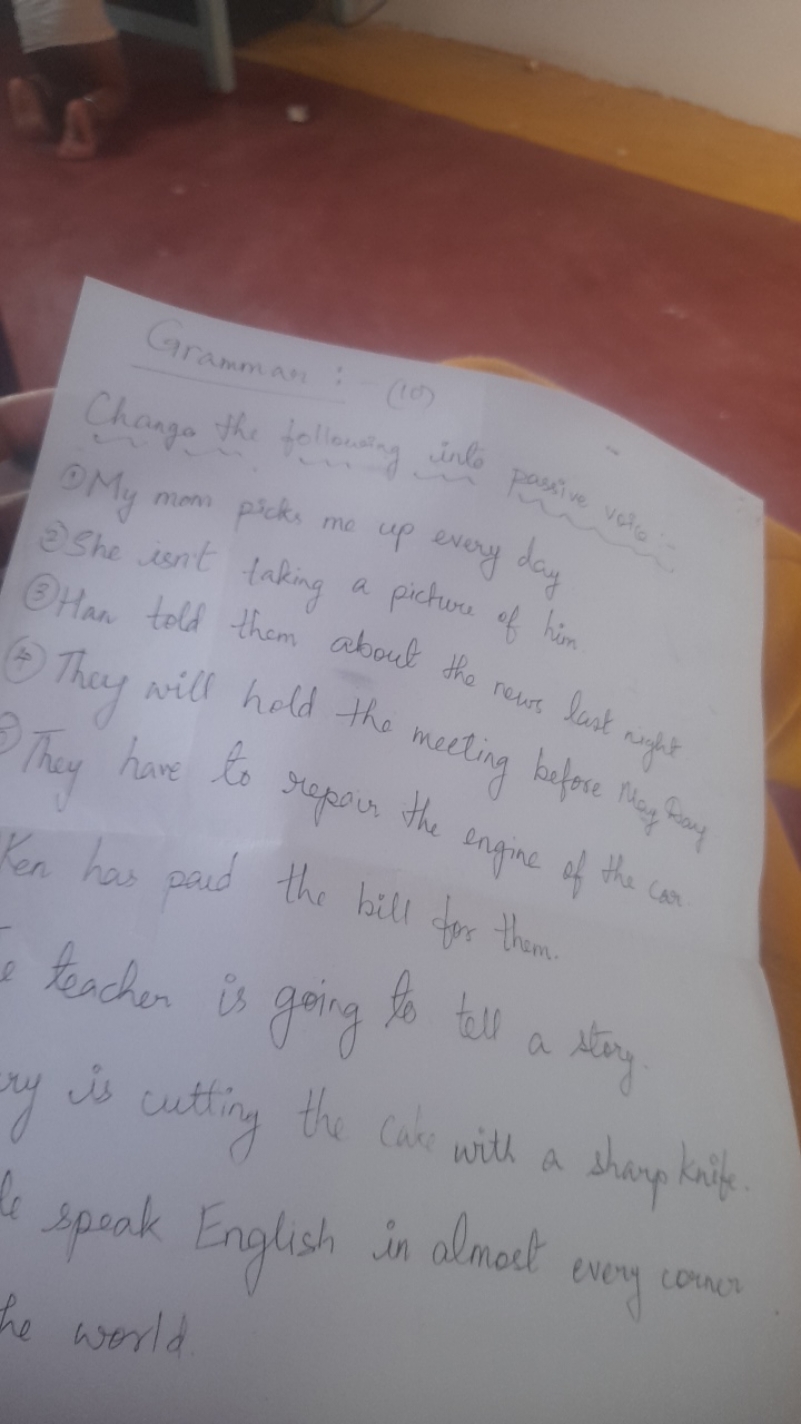 Grammar :- (10)
Change the following into passive voice :-
① My mom picks me up every day
② She isn't taking a picture of him.
③ Han told them about the news last night
④ They will hold the meeting before May Day
They have to repair the engine of the car.
Ken has paid the bill for them.
teacher is going to tell a story.
is cutting the cake with a sharp knife.
speak English in almost every corner
world.